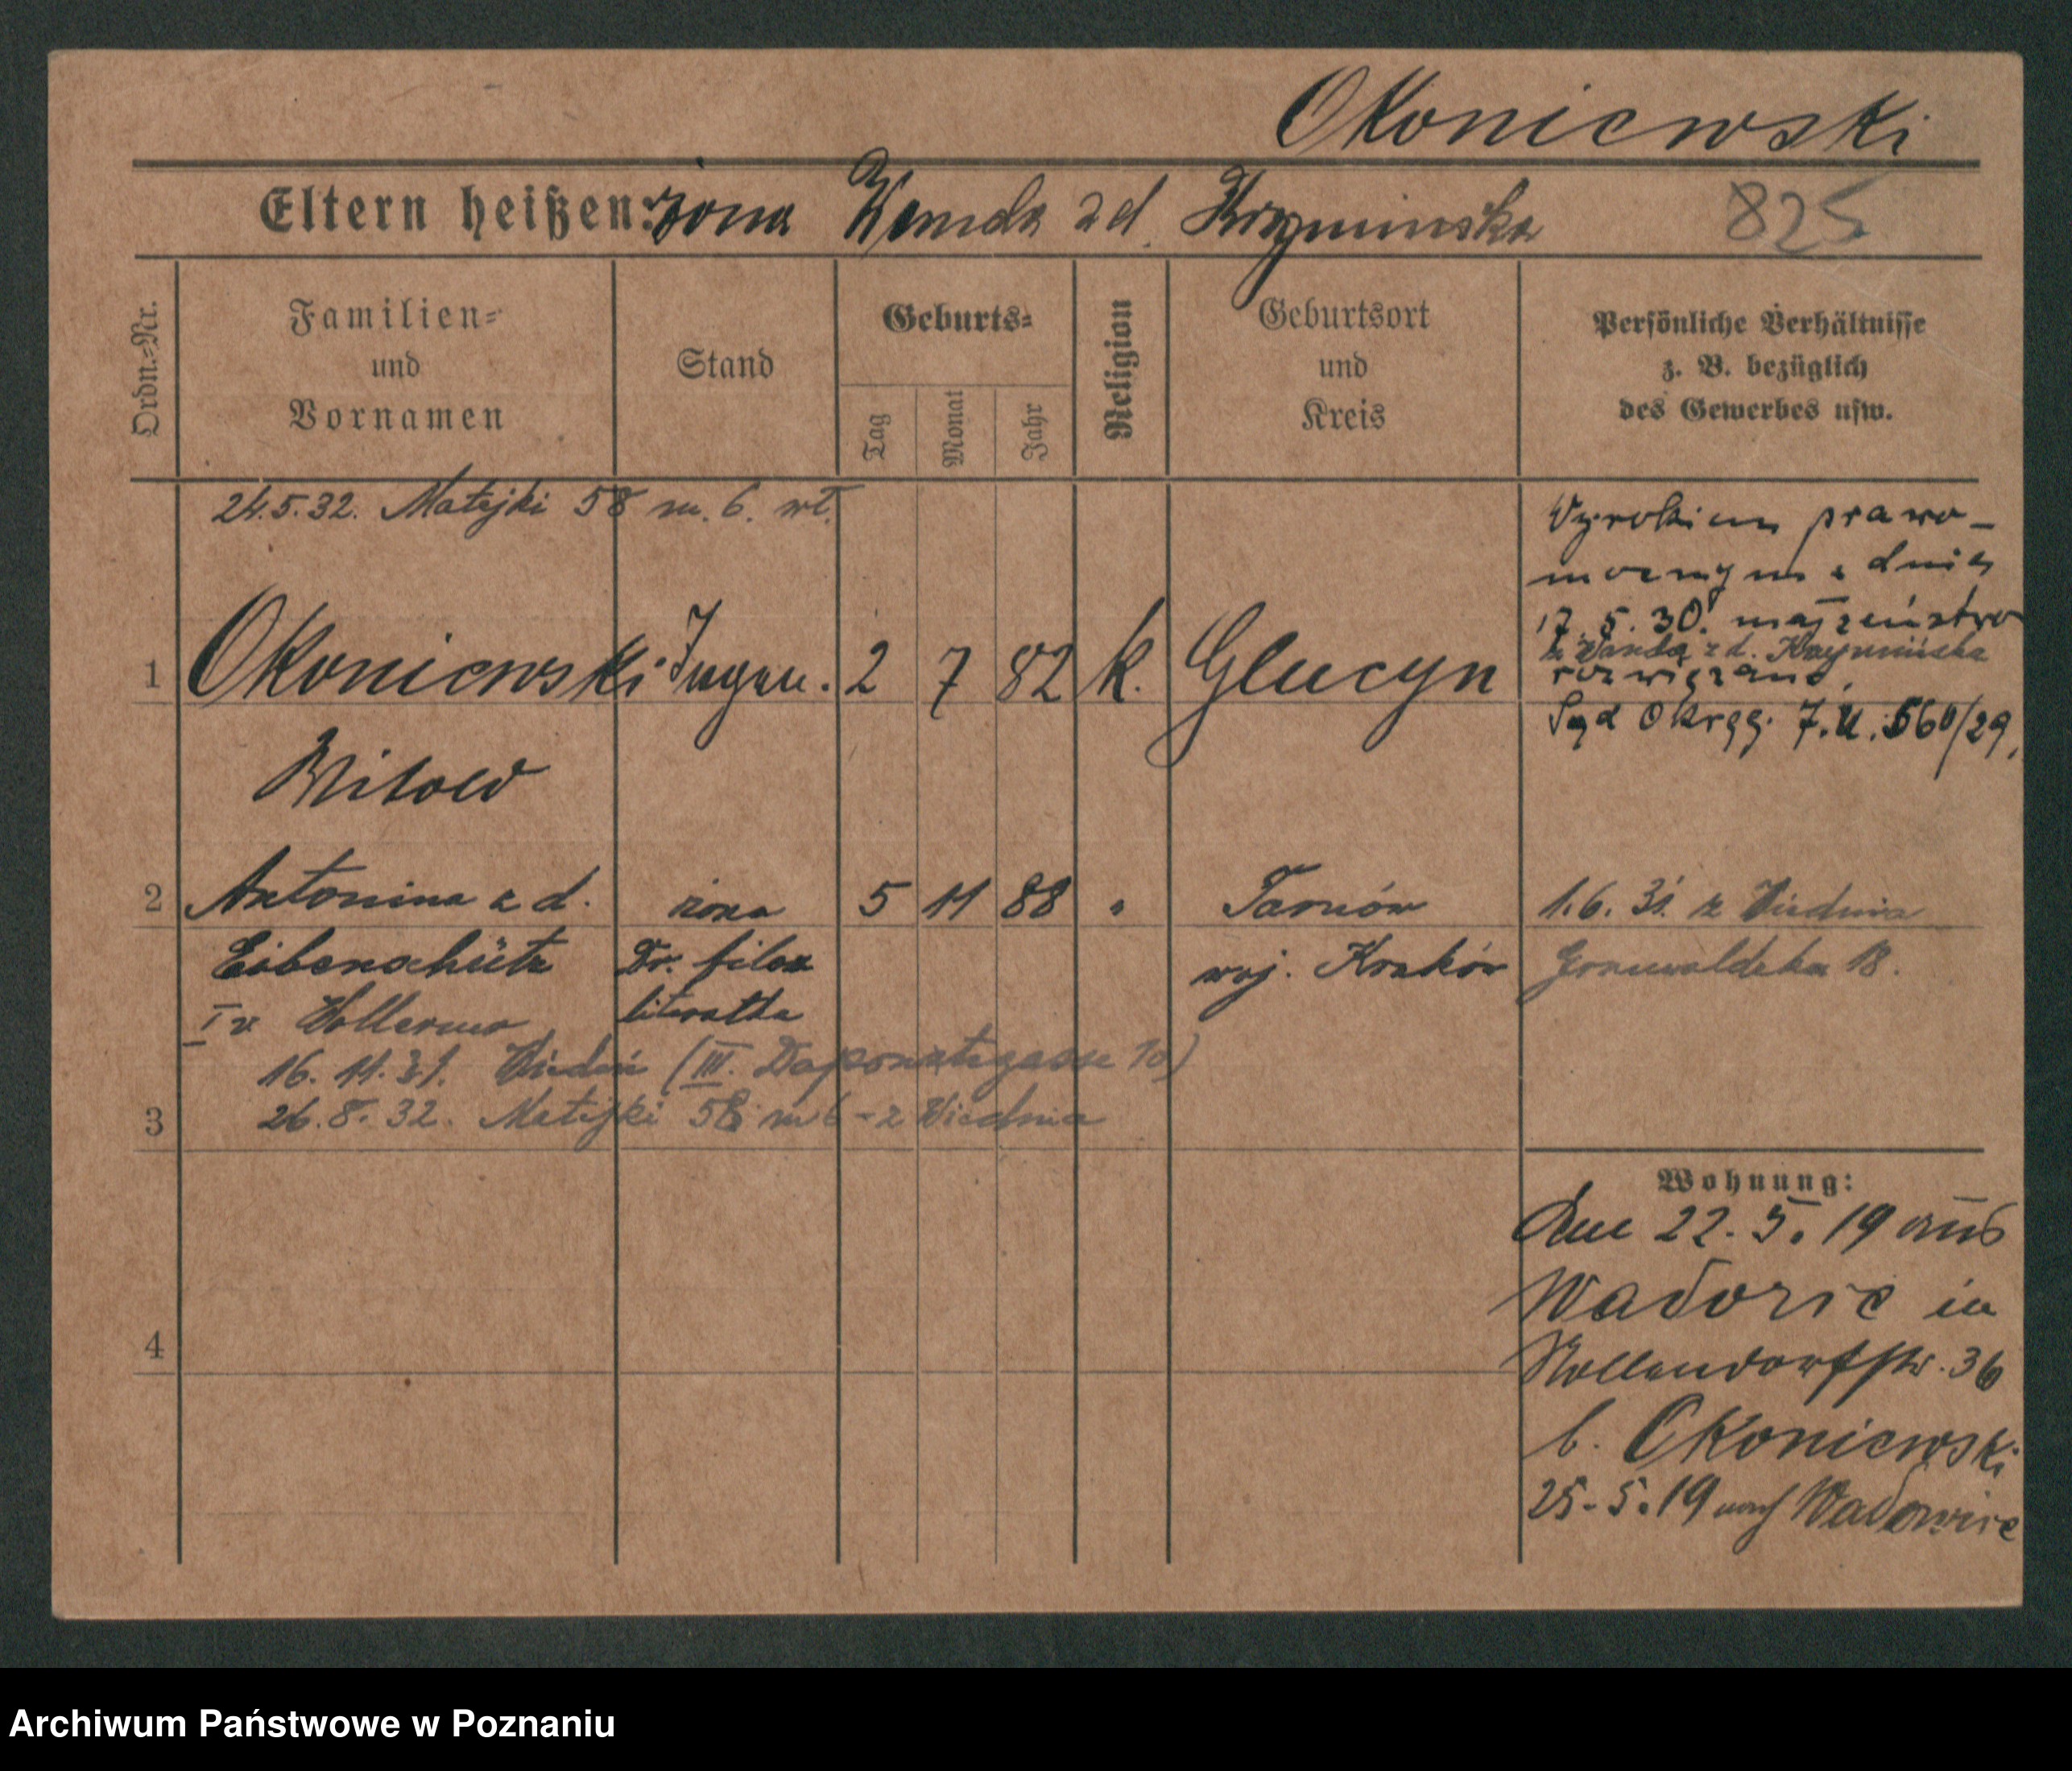 Okoniewski
Eltern heißen: żona Wanda zd. Krzyminska 825
Ordn.=Nr.
Familien=
und
Vornamen
Stand
Geburts=
Tag
Monat
Jahr
Religion
Geburtsort
und
Kreis
Persönliche Verhältnisse
z. B. bezüglich
des Gewerbes usw.
24.5.32. Matejki 58 m. 6. wł.
Wyrokiem prawo-
mocnym z dnia
17.5.30. małżeństwo
z Wandą z d. Krzymińska
rozwiązano.
Sąd Okręg. 7.U.560/29.
1 Okoniewski Ingen. 2 7 82 k. Gluczyn
Witold
2 Antonina z d. żona 5 11 88 " Tarnów 1.6.31. z Wiednia
Eibenschütz Dr. filoz woj. Kraków Grunwaldzka 18.
I v. literatka
16.11.31. Wiedeń (III. Dapontegasse 10)
3 26.8.32. Matejki 58 m 6 - z Wiednia
Wohnung:
Am 22.5.19 aus
in
4 Nollendorfstr. 36
b. Okoniewski
25.5.19 nach Wadowice
Archiwum Państwowe w Poznaniu